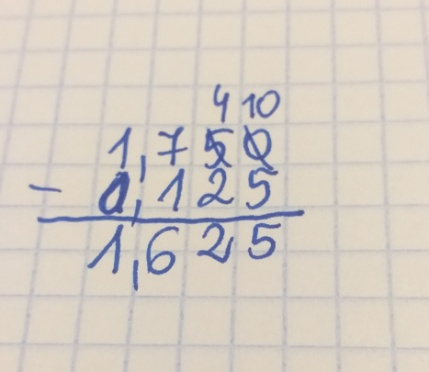 4 10
1,750
- 0,125
1,625